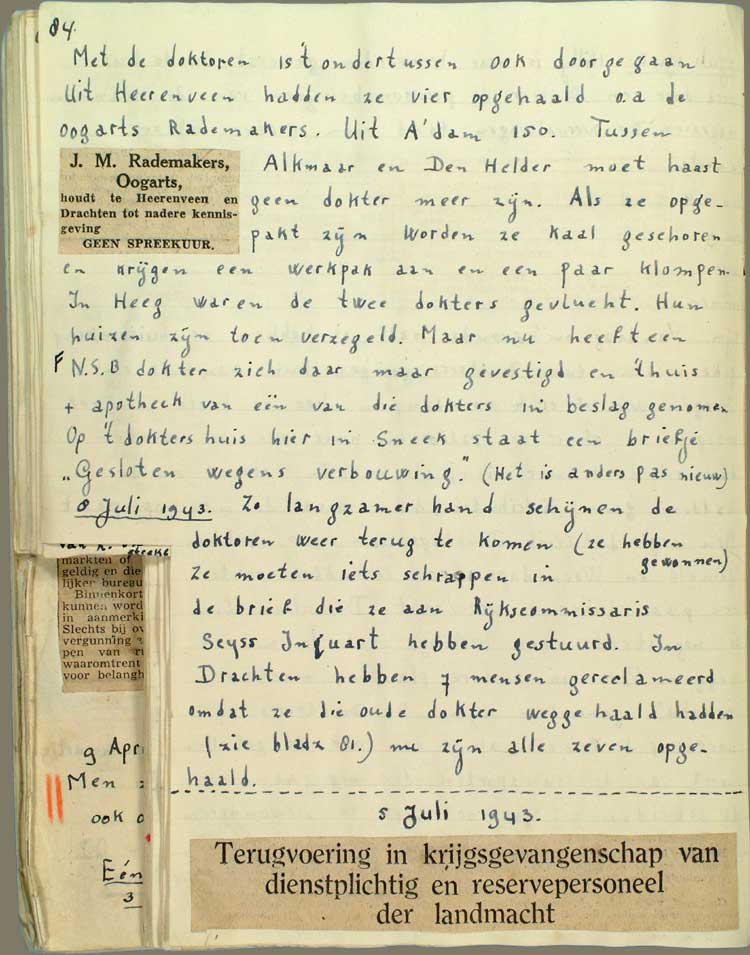 84.
Met de doktoren is 't ondertussen ook doorgegaan
Uit Heerenveen hadden ze vier opgehaald o.a de
oogarts Rademakers. Uit A'dam 150. Tussen
J. M. Rademakers,
Oogarts,
houdt te Heerenveen en
Drachten tot nadere kennis-
geving
GEEN SPREEKUUR.
Alkmaar en Den Helder moet haast
geen dokter meer zijn. Als ze opge-
pakt zijn worden ze kaal geschoren
en krijgen een werkpak aan en een paar klompen.
In Heeg waren de twee dokters gevlucht. Hun
huizen zijn toen verzegeld. Maar nu heeft een
F N.S.B dokter zich daar maar gevestigd en 't huis
+ apotheek van eën van die dokters in beslag genomen
Op 't doktershuis hier in Sneek staat een briefje
„Gesloten wegens verbouwing." (Het is anders pas nieuw)
8 Juli 1943. Zo langzamer hand schijnen de
doktoren weer terug te komen (ze hebben
gewonnen)
Ze moeten iets schrappen in
de brief die ze aan Rijkscommissaris
Seyss Inquart hebben gestuurd. In
Drachten hebben 7 mensen gereclameerd
omdat ze die oude dokter weggehaald hadden
(zie bladz 81.) nu zijn alle zeven opge-
haald.
streke
markten of
geldig en die
lijker bureau
Binnenkort
kunnen word
in aanmerki
Slechts bij ov
vergunning
pen van ri
waaromtrent
voor belangh
9 Apri
Men
ook
Eén
3
5 Juli 1943.
Terugvoering in krijgsgevangenschap van
dienstplichtig en reservepersoneel
der landmacht